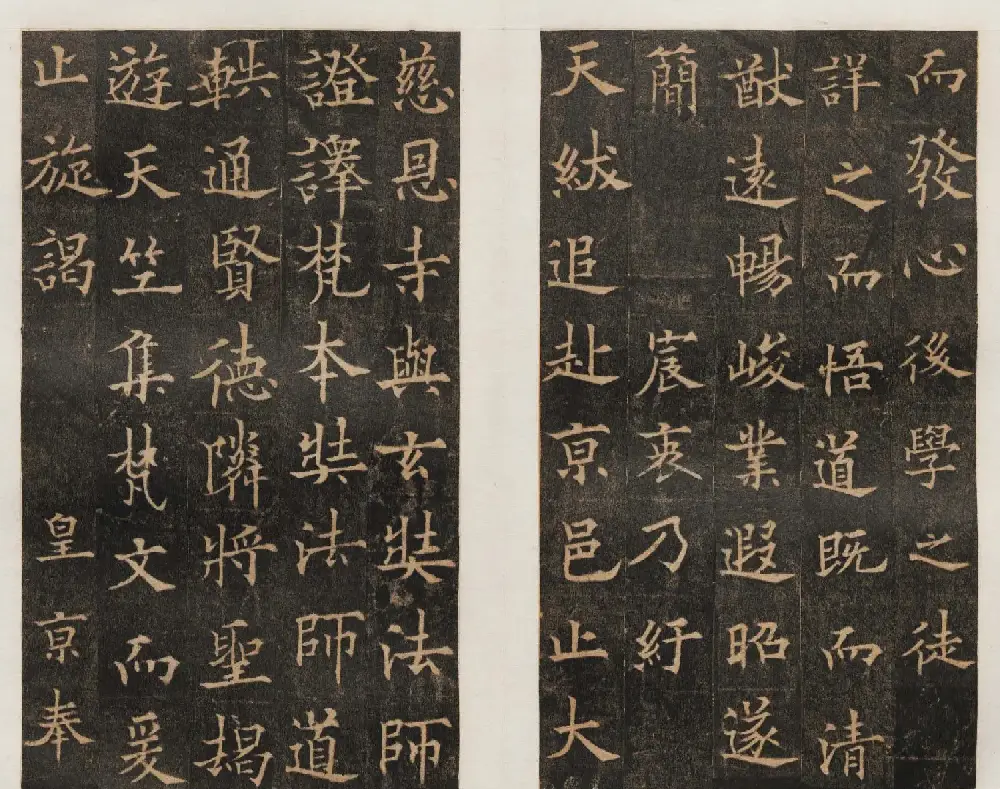 而發心後學之徒
詳之而悟道既而清
猷遠暢峻業遐昭遂
簡宸衷乃紆
天紱追赴京邑止大
慈恩寺與玄奘法師
證譯梵本奘法師道
軼通賢德隣將聖搗
遊天竺集梵文而爰
止旋謁皇京奉